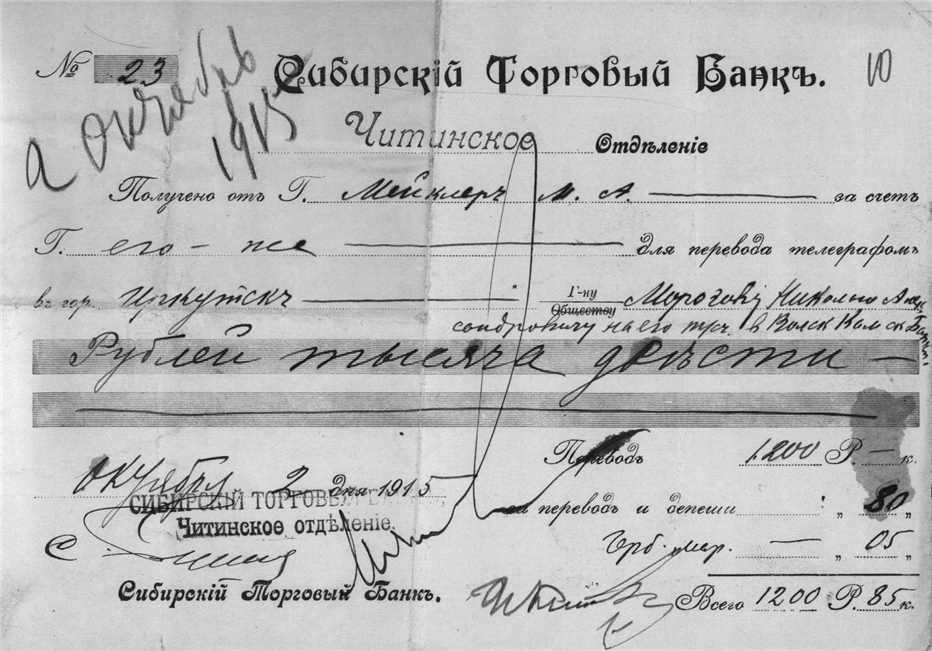 № 23 Сибирскій Торговый Банкъ. 10
2 октябрь
1915
Читинское Отдѣленіе
Получено отъ Г. Мейклеръ М. А. за счетъ
Г. его-же для перевода телеграфомъ
въ гор. Иркутскъ Г-ну Обществу Морозову Николаю
на его тек. в Волжск Камск
Рублей тысяча двѣсти
Переводъ 1200 Р. — к.
Октября 2 дня 1915
СИБИРСКІЙ ТОРГОВЫЙ
за переводъ и депеши „ 80 „
Читинское отдѣленіе
Герб. мар. — „ 05 „
Сибирскій Торговый Банкъ.
Всего 1200 Р. 85 к.